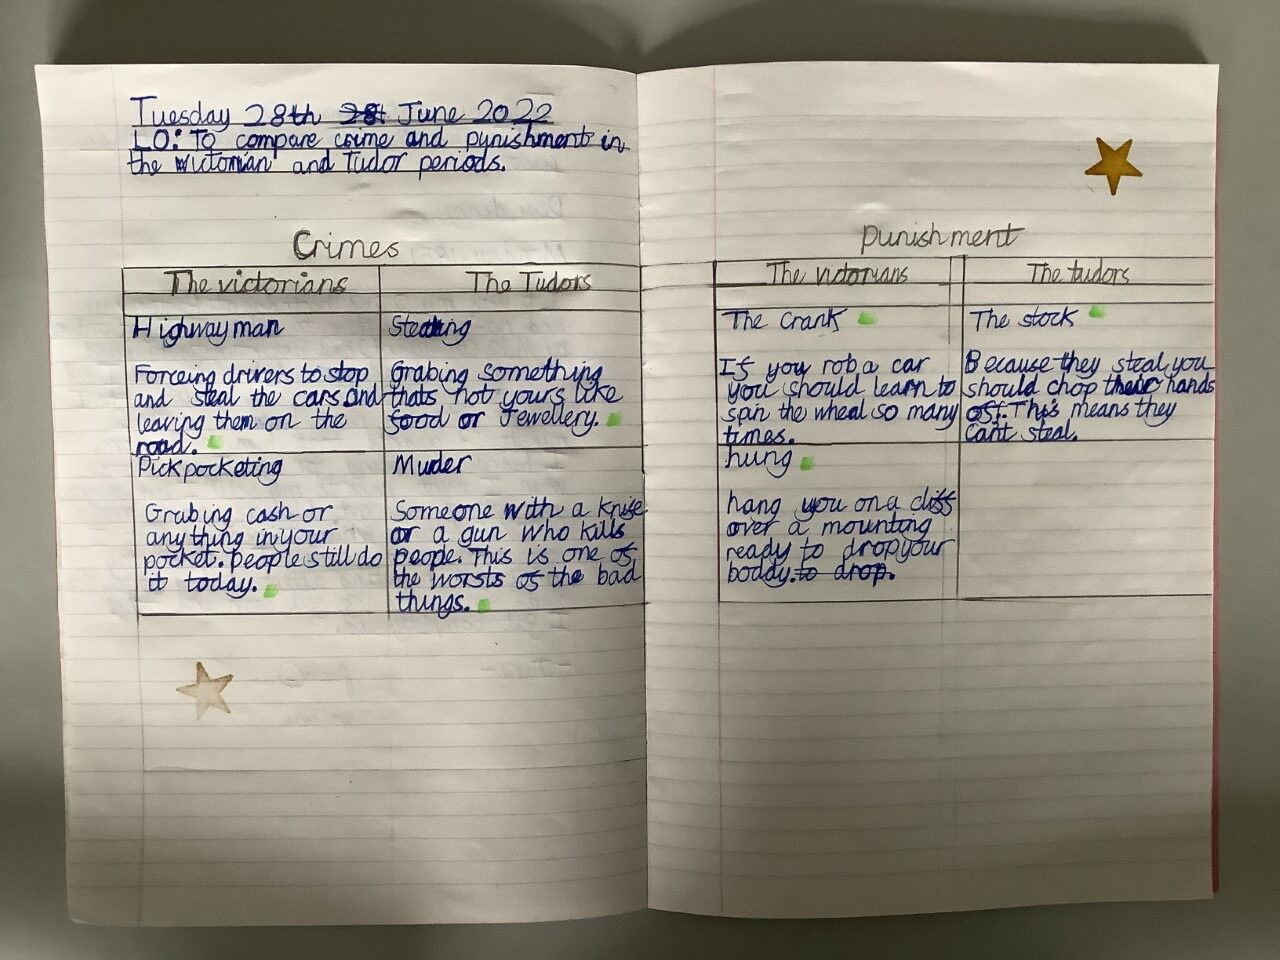 Tuesday 28th 28t June 2022
LO: To compare crime and punishment in
the victorian and Tudor periods.
Crimes
The victorians
The Tudors
Highwayman
Forceing drivers to stop
and steal the cars and
leaving them on the
road.
Stealing
Grabing something
thats not yours like
food or Jewellery.
Pickpocketing
Grabing cash or
anything in your
pocket. people still do
it today.
Muder
Someone with a knife
or a gun who kills
people. This is one of
the worsts of the bad
things.
punishment
The victorians
The tudors
The Crank
If you rob a car
you should learn to
spin the wheal so many
times.
The stock
Because they steal you
should chop their hands
off. This means they
cant steal.
hung
hang you on a cliff
over a mounting
ready to drop your
boddy. to drop.